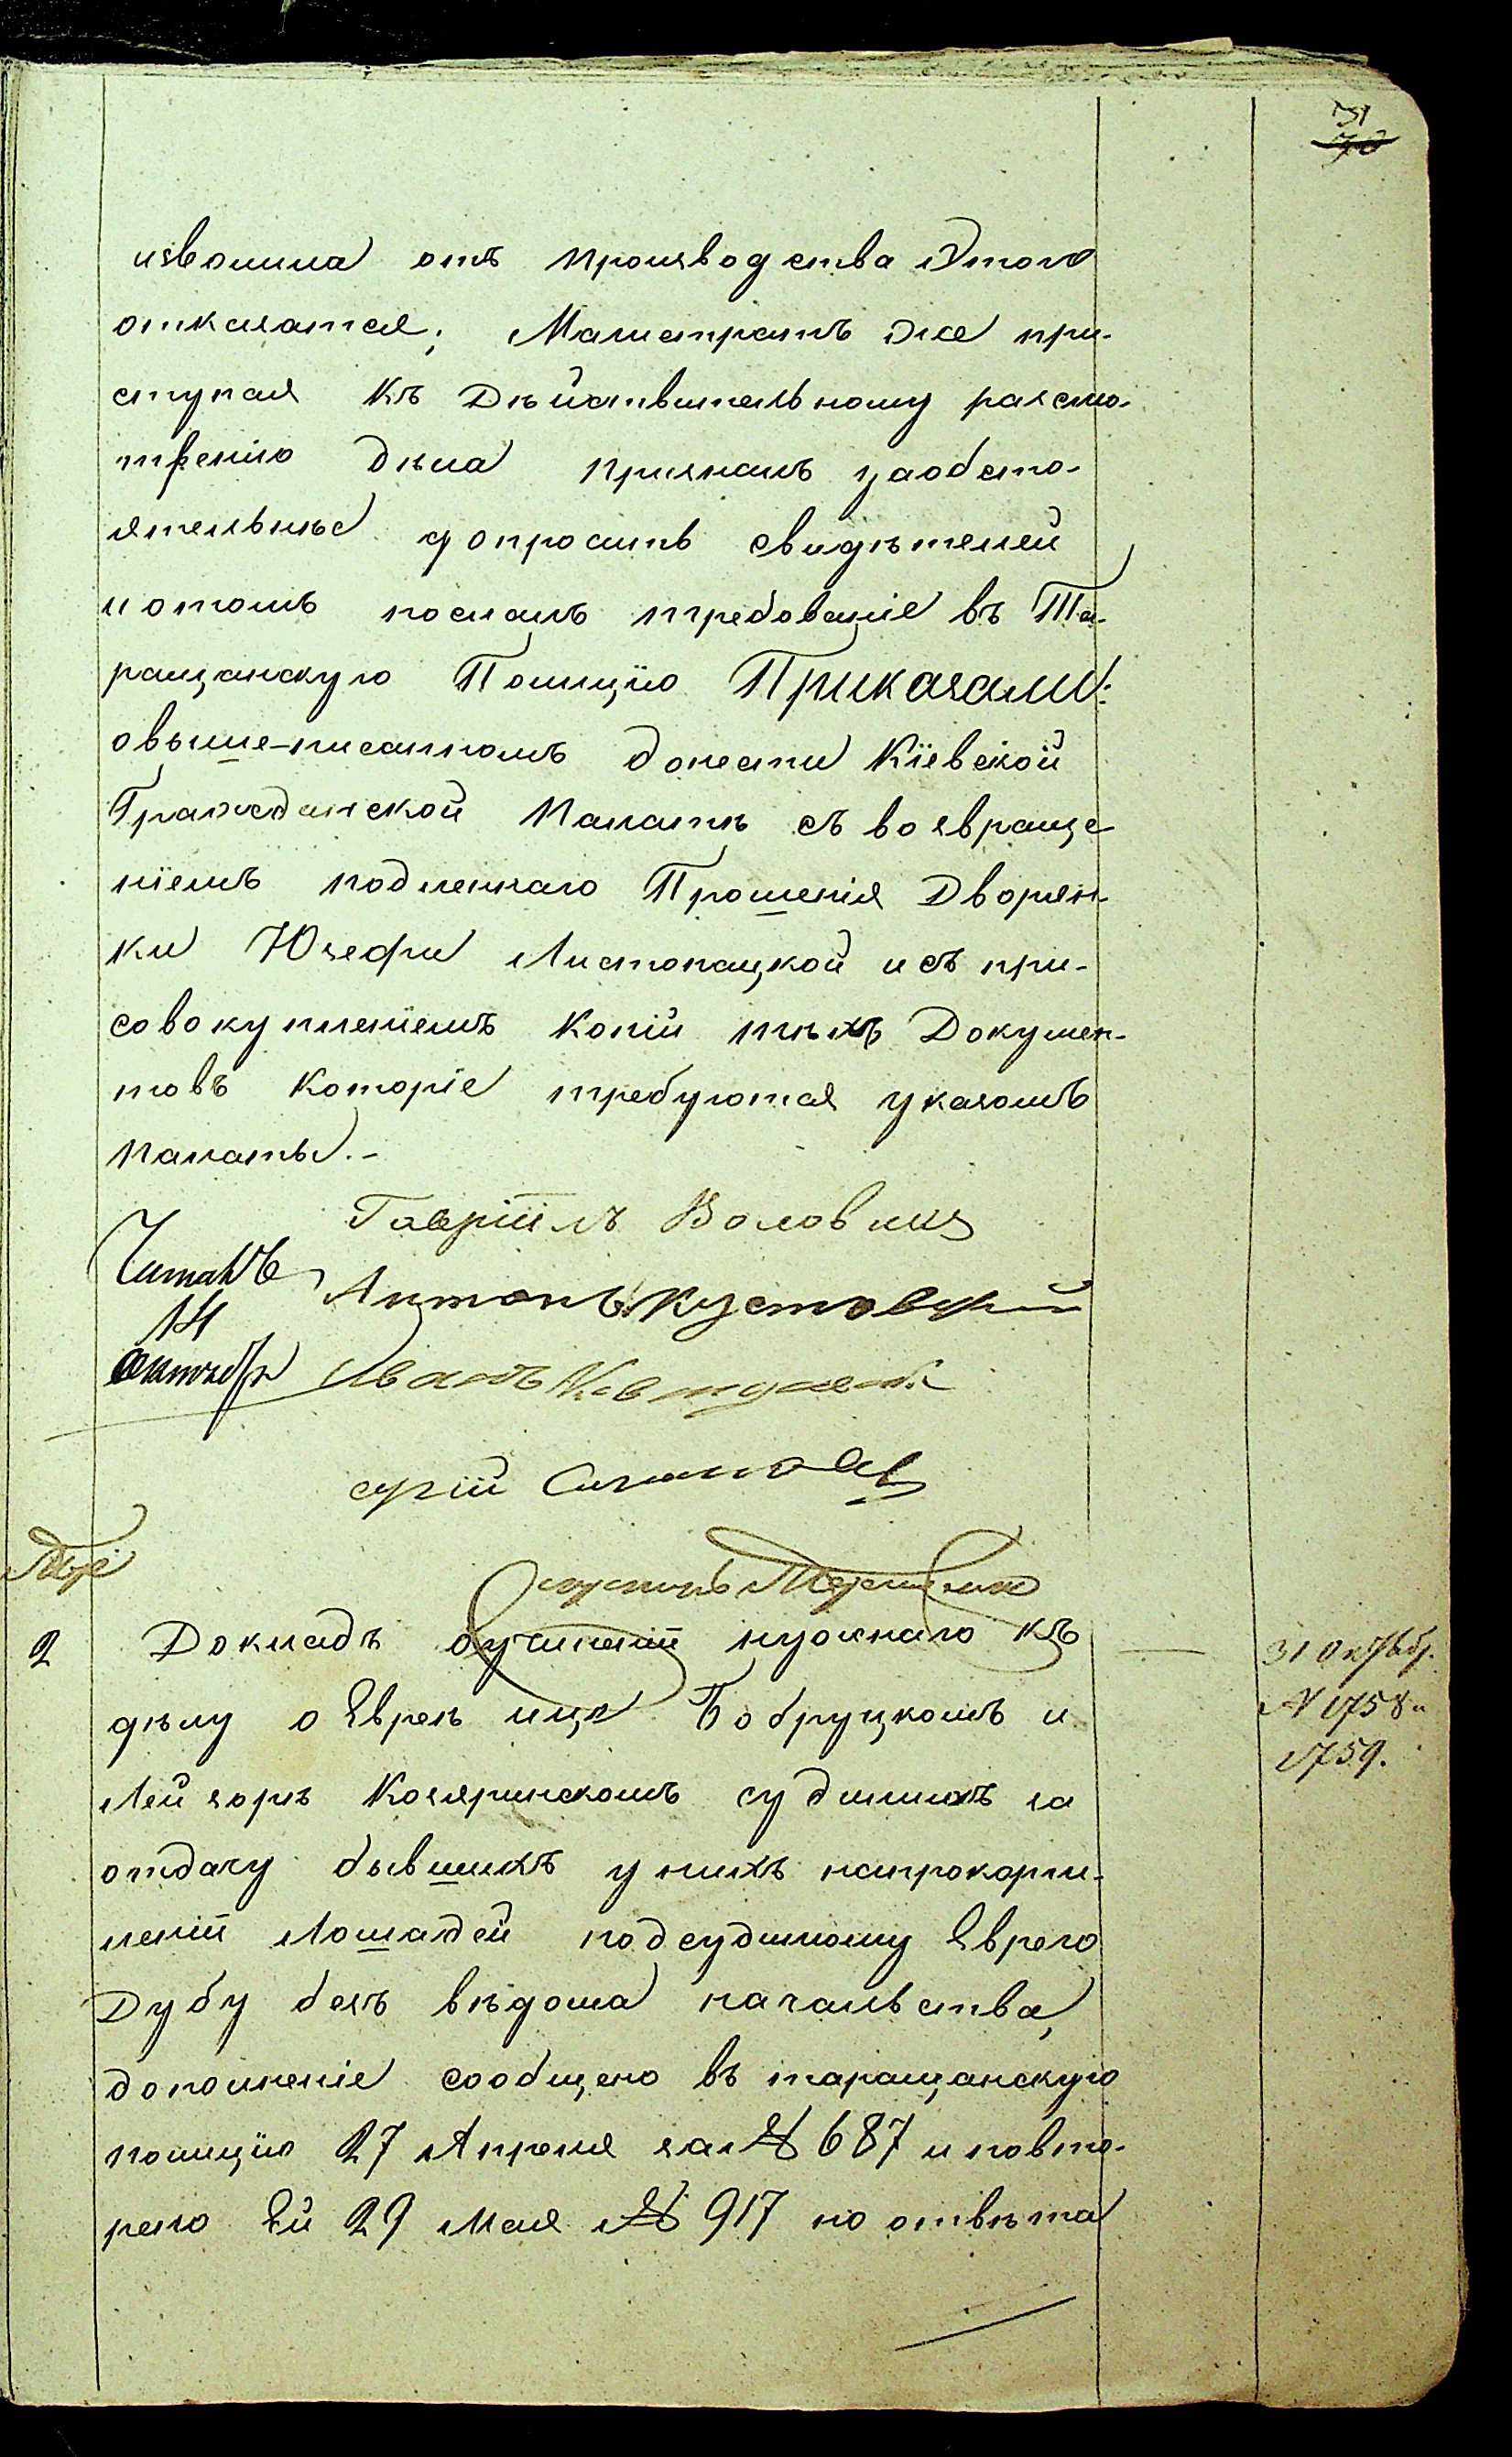 71
70
изволила отъ производства Этого
отказатся; Магистратъ Же при-
ступая къ Дѣйствительному разсмо-
тренію дѣла призналъ заобсто-
ятельные допросить свидѣтелей
иотомъ послалъ требованіе въ Та-
ращанскую Полицію Приказали:
овыше-писанномъ донести Кіевской
Гражданской Палатѣ съ возвраще-
ніемъ подленнаго Прошенія Дворян-
ки Юзефи Листопацкой и съ при-
совокупленіемъ Копій тѣхъ Докумен-
товъ Которіе требуются указомъ
Палаты.-
Гавріилъ
Читалъ
14
октября
Антонъ Кустовскій
Иванъ
юрій
2 Докладъ оучиненій нужнаго къ
дѣлу о Евреѣ ицк Бобруцкомъ и
Лейзорѣ Козяринскомъ судимихъ за
отдачу бывшихъ у нихъ напрокорм-
леніи Лошадей подсудимому Еврею
Дубу безъ вѣдома начальства,
дополненіе сообщено въ таращанскую
полицію 27 Апреля за № 687 и повто-
рено Ей 29 Мая № 917 но отвѣта
31 Октябр.
№ 1758 и
1759.